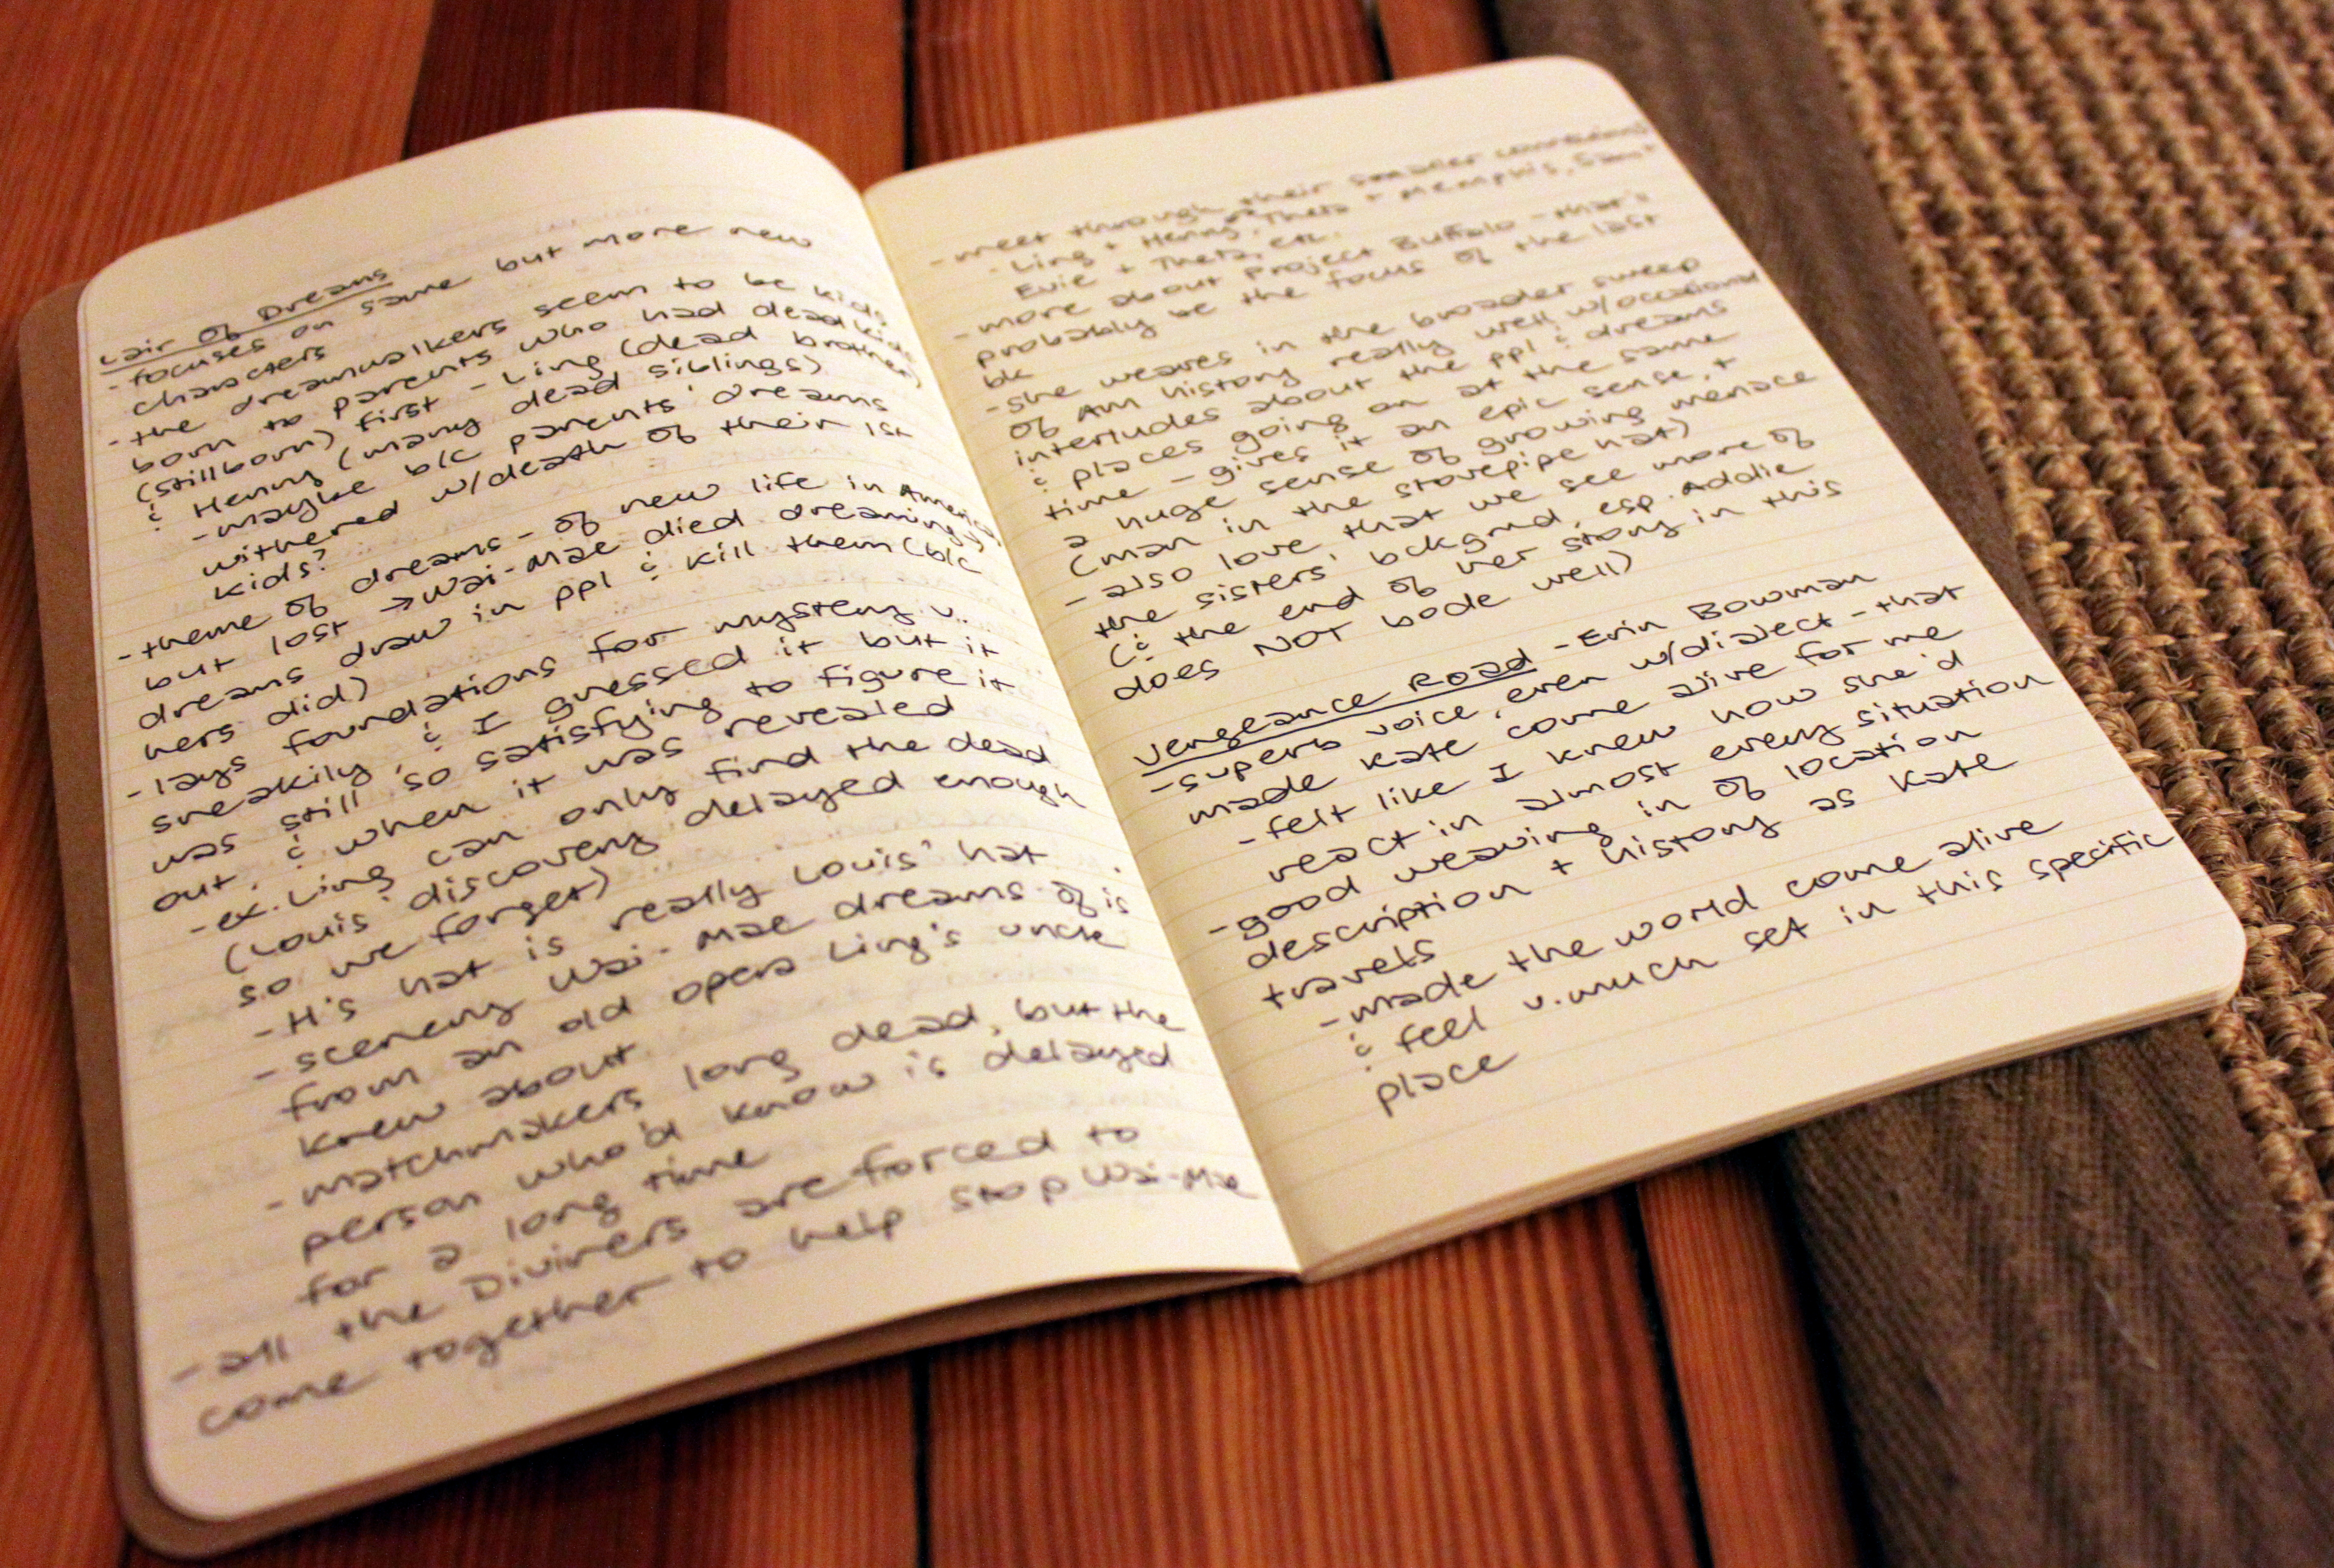 Lair Of Dreams
- focuses on same but more new
characters
- the dreamwalkers seem to be kids
born to parents who had dead kids
(stillborn) first - Ling (dead brother)
& Henry (many dead siblings)
- maybe b/c parents' dreams
withered w/death of their 1st
kids?
- theme of dreams - of new life in America,
but lost → Wai-Mae died dreaming,
dreams draw in ppl & kill them (b/c
hers did)
- lays foundations for mystery v.
sneakily, & I guessed it but it
was still so satisfying to figure it
out, & when it was revealed
- ex. Ling can only find the dead
(Louis' discovery delayed enough
so we forget)
- His hat is really Louis' hat
- scenery Wai-Mae dreams of is
from an old opera Ling's uncle
knew about
- matchmakers long dead, but the
person who'd know is delayed
for a long time
- all the Diviners are forced to
come together to help stop Wai-Mae
- meet through their smaller connections
- Ling + Henry, Theta + Memphis, Sam +
Evie + Theta, etc.
- more about Project Buffalo - that'll
probably be the focus of the last
bk
- she weaves in the broader sweep
of Am history really well w/occasional
interludes about the ppl & dreams
& places going on at the same
time - gives it an epic sense, +
a huge sense of growing menace
(man in the stovepipe hat)
- also love that we see more of
the sisters' bckgrnd, esp. Addie
(& the end of her story in this
does NOT bode well)
Vengeance Road - Erin Bowman
- superb voice, even w/dialect - that
made Kate come alive for me
- felt like I knew how she'd
react in almost every situation
- good weaving in of location
description + history as Kate
travels
- made the world come alive
& feel v. much set in this specific
place